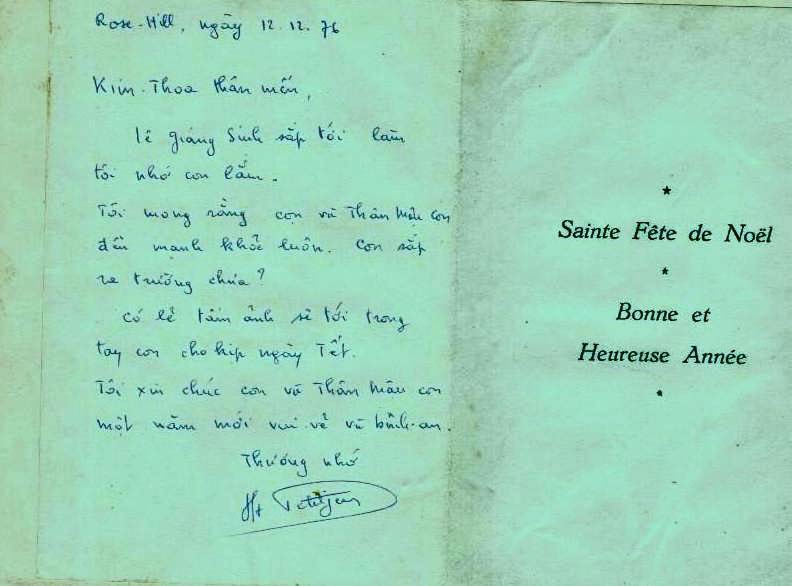 Rose-Hill, ngày 12.12.76
Kim-Thoa thân mến,
lê giáng Sinh sắp tới làm
tôi nhớ con lắm.
Tôi mong rằng con và Thân Mẫu con
đều mạnh khỏe luôn. Con sắp
ra trường chưa?
Có lẽ tấm ảnh sẽ tới trong
tay con cho kịp ngày Tết.
Tôi xin chúc con và Thân Mẫu con
một năm mới vui-vẻ và bình-an.
Thương nhớ
Petitjean
*
Sainte Fête de Noël
*
Bonne et
Heureuse Année
*